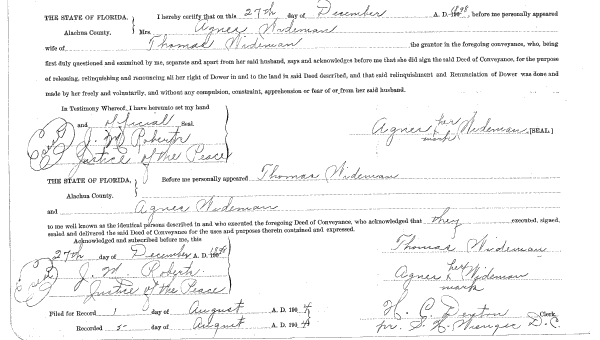 THE STATE OF FLORIDA, } I hereby certify that on this 27th day of December A. D. 190 1898, before me personally appeared
Alachua County. } Mrs. Agnes Wideman
wife of Thomas Wideman the grantor in the foregoing conveyance, who, being
first duly questioned and examined by me, separate and apart from her said husband, says and acknowledges before me that she did sign the said Deed of Conveyance, for the purpose
of releasing, relinquishing and renouncing all her right of Dower in and to the land in said Deed described, and that said relinquishment and Renunciation of Dower was done and
made by her freely and voluntarily, and without any compulsion, constraint, apprehension or fear of or from her said husband.
In Testimony Whereof, I have hereunto set my hand
and official Seal.
J. M. Roberts
Justice of the Peace
Agnes her mark Wideman [SEAL.]
THE STATE OF FLORIDA, } Before me personally appeared Thomas Wideman
Alachua County. }
and Agnes Wideman
to me well known as the identical persons described in and who executed the foregoing Deed of Conveyance, who acknowledged that they executed, signed,
sealed and delivered the said Deed of Conveyance for the uses and purposes therein contained and expressed.
Acknowledged and subscribed before me, this
27th day of December A. D. 190 1898
J. M. Roberts
Justice of the Peace
Thomas Wideman
Agnes her mark Wideman
Filed for Record 1 day of August A. D. 190 4
Recorded 5 day of August A. D. 190 4
H. C. Denton Clerk
pr. S. H. Wienges D. C.